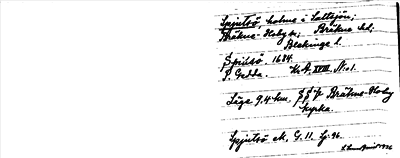 Spjutsö, holme i Saltsjön;
Bräkne-Hoby sn; Bräkne hd;
Blekinge l.
Spiutsö. 1684.
P. Gedda. Kr.A. XVIII. N:o 1.
Läge 9,4 km SSV Bräkne-Hoby
kyrka.
Spjutsö ek. G. 11.